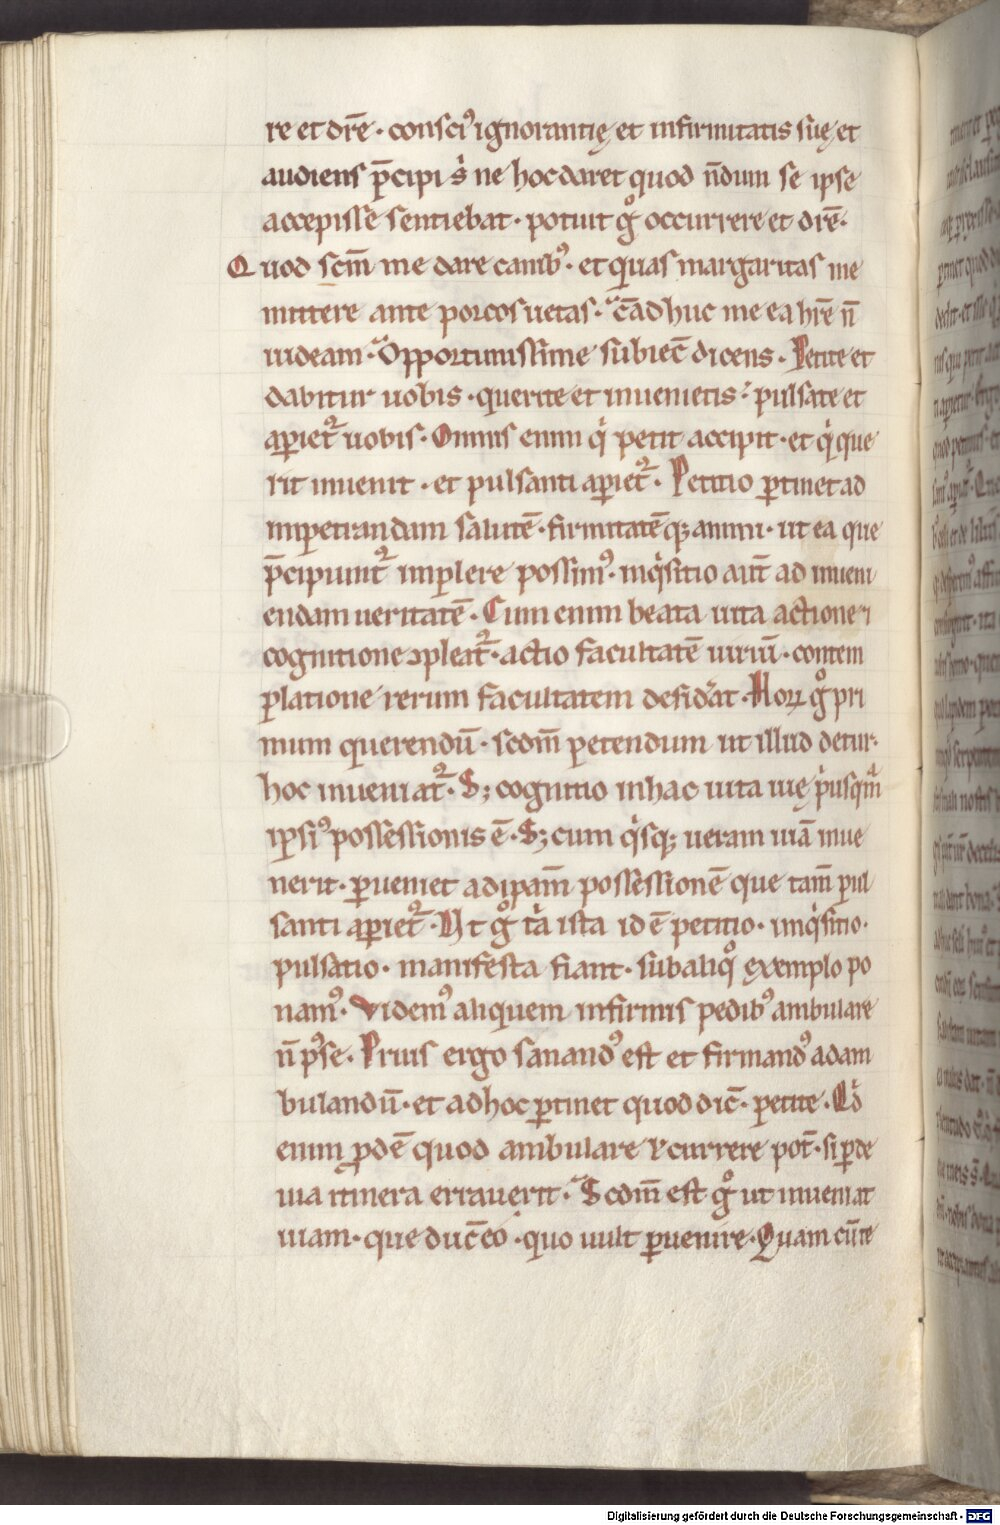 re et dr̄e · consciꝰ ignorantię et infirmitatis sue et
audiens p̄cipi s̓ ne hoc daret quod n̄dum se ipse
accepisse sentiebat · potuit gͦ occurrere et dr̄e ·
Quod scm̄ me dare canibꝰ · et quas margaritas me
mittere ante porcos uetas · cā adhuc me ea hr̄e n̄
uideam · Opportunissime subiec̄ dicens · Petite et
dabitur uobis · querite et inuenietis · pulsate et
aꝑiet᷑ uobis · Omnis enim qͥ petit accipit · et qͥ que
rit inuenit · et pulsanti aꝑiet᷑ · Petitio ꝑtinet ad
impetrandam salutē · firmitatēqꝫ animi · ut ea que
p̄cipiunt᷑ implere possimꝰ · inqͥsitio aut̄ ad inueni
endam ueritatē · Cum enim beata uita actione ⁊
cognitione ꝯpleat᷑ · actio facultatē uiriū · contem
platione rerum facultatem desid̓at · Hoꝝ gͦ pri
mum querendū · scdm̄ petendum ut illud detur ·
hoc inueniat᷑ · Sꝫ cognitio in hac uita uię pͥusqͣm
ipsiꝰ possessionis ē · Sꝫ cum qͥsqꝫ ueram uiā inue
nerit · ꝑueniet ad ipam̄ possessionē que tam̄ pul
santi aꝑiet᷑ · Ut gͦ tͥa ista id ē petitio · inqͥsitio ·
pulsatio · manifesta fiant · sub aliqͦ exemplo po
namꝰ · Videmꝰ aliquem infirmis pedibꝰ ambulare
n̄ pꝰse · Prius ergo sanandꝰ est et firmandꝰ ad am
bulandū · et ad hoc ꝑtinet quod dic̄ · petite · Qͥd
enim ꝓdē quod ambulare ⁊ currere pot̄ · si ꝑ de
uia itinera errauerit · Scdm̄ est gͦ ut inueniat
uiam · que duc̄ eo · quo uult ꝑuenire · Quam cū te
Digitalisierung gefördert durch die Deutsche Forschungsgemeinschaft - DFG